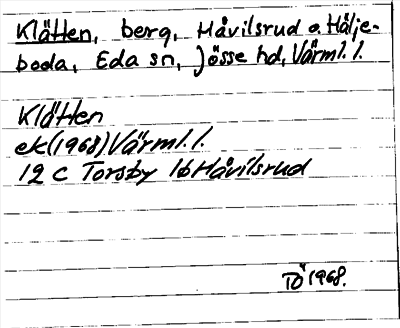 Klätten, berg, Håvilsrud o. Hälje-
boda, Eda sn, Jösse hd, Värml. l.
Klätten
ek(1968) Värml. l.
12 C Torsby 1b Håvilsrud
TÖ 1968.